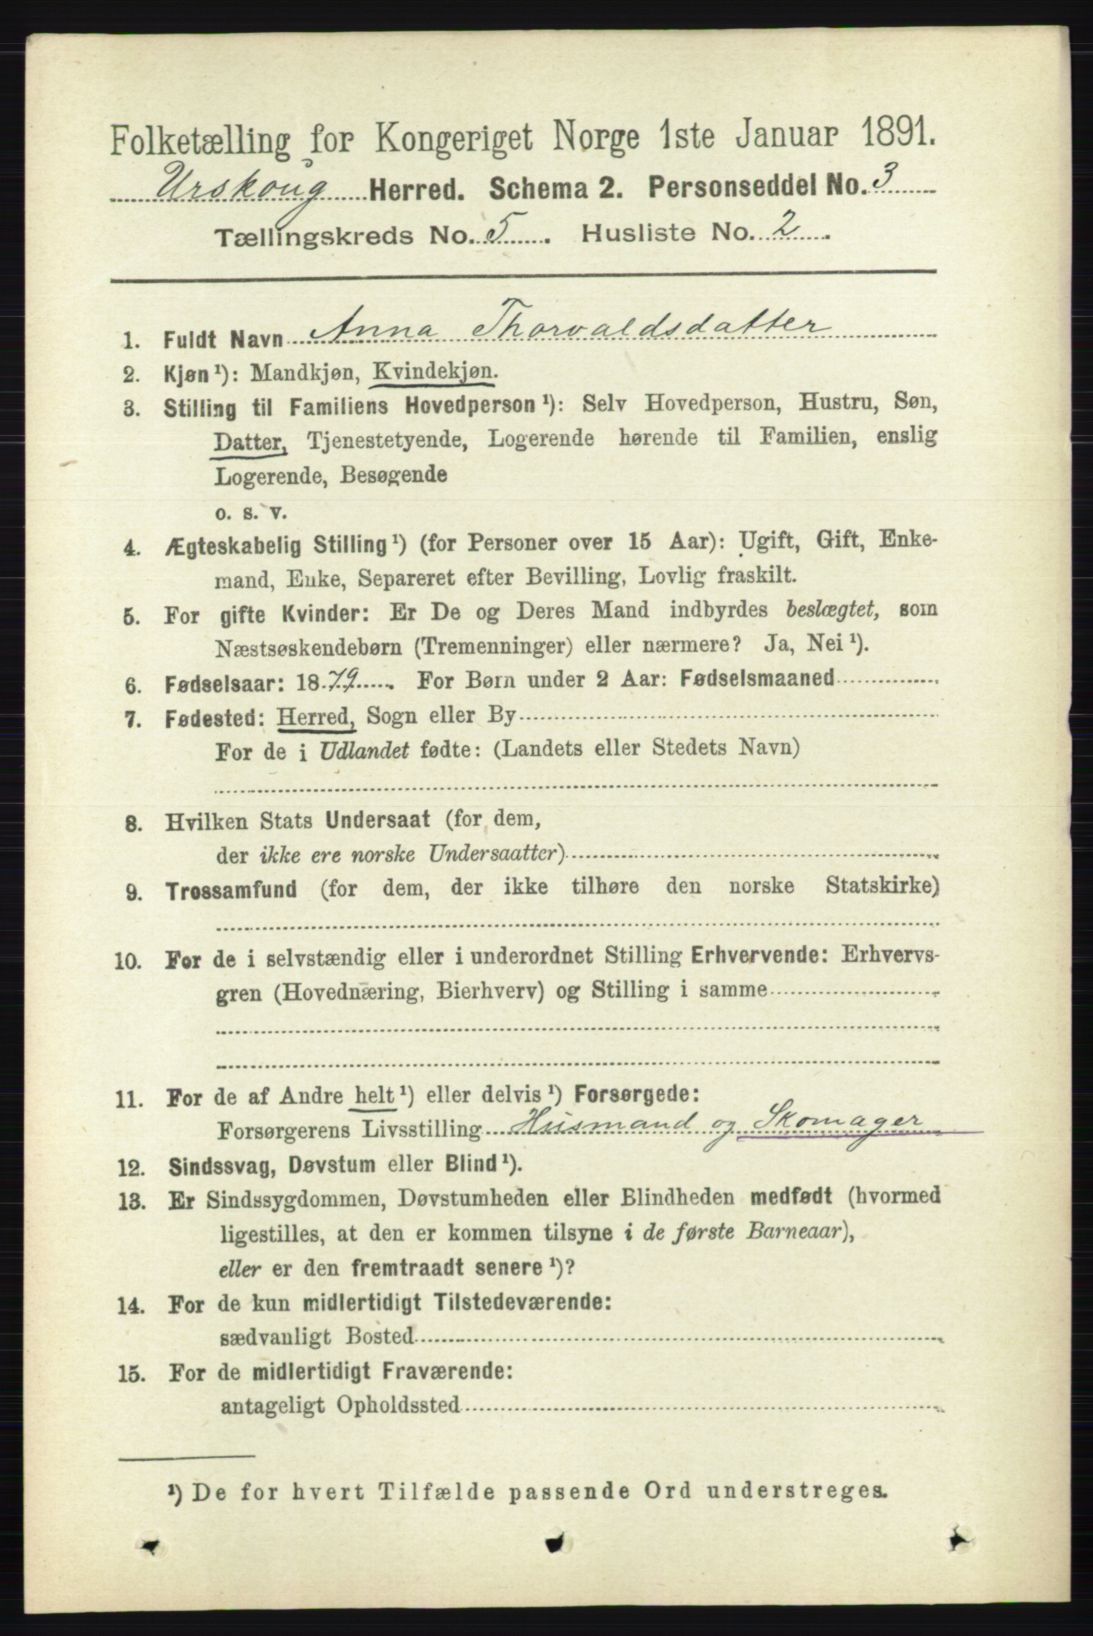 Folketælling for Kongeriget Norge 1ste Januar 1891.
Urskoug Herred. Schema 2. Personseddel No. 3
Tællingskreds No. 5. Husliste No. 2.
1. Fuldt Navn Anna Thorvaldsdatter
2. Kjøn ¹): Mandkjøn, Kvindekjøn.
3. Stilling til Familiens Hovedperson ¹): Selv Hovedperson, Hustru, Søn,
Datter, Tjenestetyende, Logerende hørende til Familien, enslig
Logerende, Besøgende
o. s. v.
4. Ægteskabelig Stilling ¹) (for Personer over 15 Aar): Ugift, Gift, Enke-
mand, Enke, Separeret efter Bevilling, Lovlig fraskilt.
5. For gifte Kvinder: Er De og Deres Mand indbyrdes beslægtet, som
Næstsøskendebørn (Tremenninger) eller nærmere? Ja, Nei ¹).
6. Fødselsaar: 1879. For Børn under 2 Aar: Fødselsmaaned
7. Fødested: Herred, Sogn eller By
For de i Udlandet fødte: (Landets eller Stedets Navn)
8. Hvilken Stats Undersaat (for dem,
der ikke ere norske Undersaatter)
9. Trossamfund (for dem, der ikke tilhøre den norske Statskirke)
10. For de i selvstændig eller i underordnet Stilling Erhvervende: Erhvervs-
gren (Hovednæring, Bierhverv) og Stilling i samme
11. For de af Andre helt ¹) eller delvis ¹) Forsørgede:
Forsørgerens Livsstilling Husmand og Skomager
12. Sindssvag, Døvstum eller Blind ¹).
13. Er Sindssygdommen, Døvstumheden eller Blindheden medfødt (hvormed
ligestilles, at den er kommen tilsyne i de første Barneaar),
eller er den fremtraadt senere ¹)?
14. For de kun midlertidigt Tilstedeværende:
sædvanligt Bosted
15. For de midlertidigt Fraværende:
antageligt Opholdssted
¹) De for hvert Tilfælde passende Ord understreges.